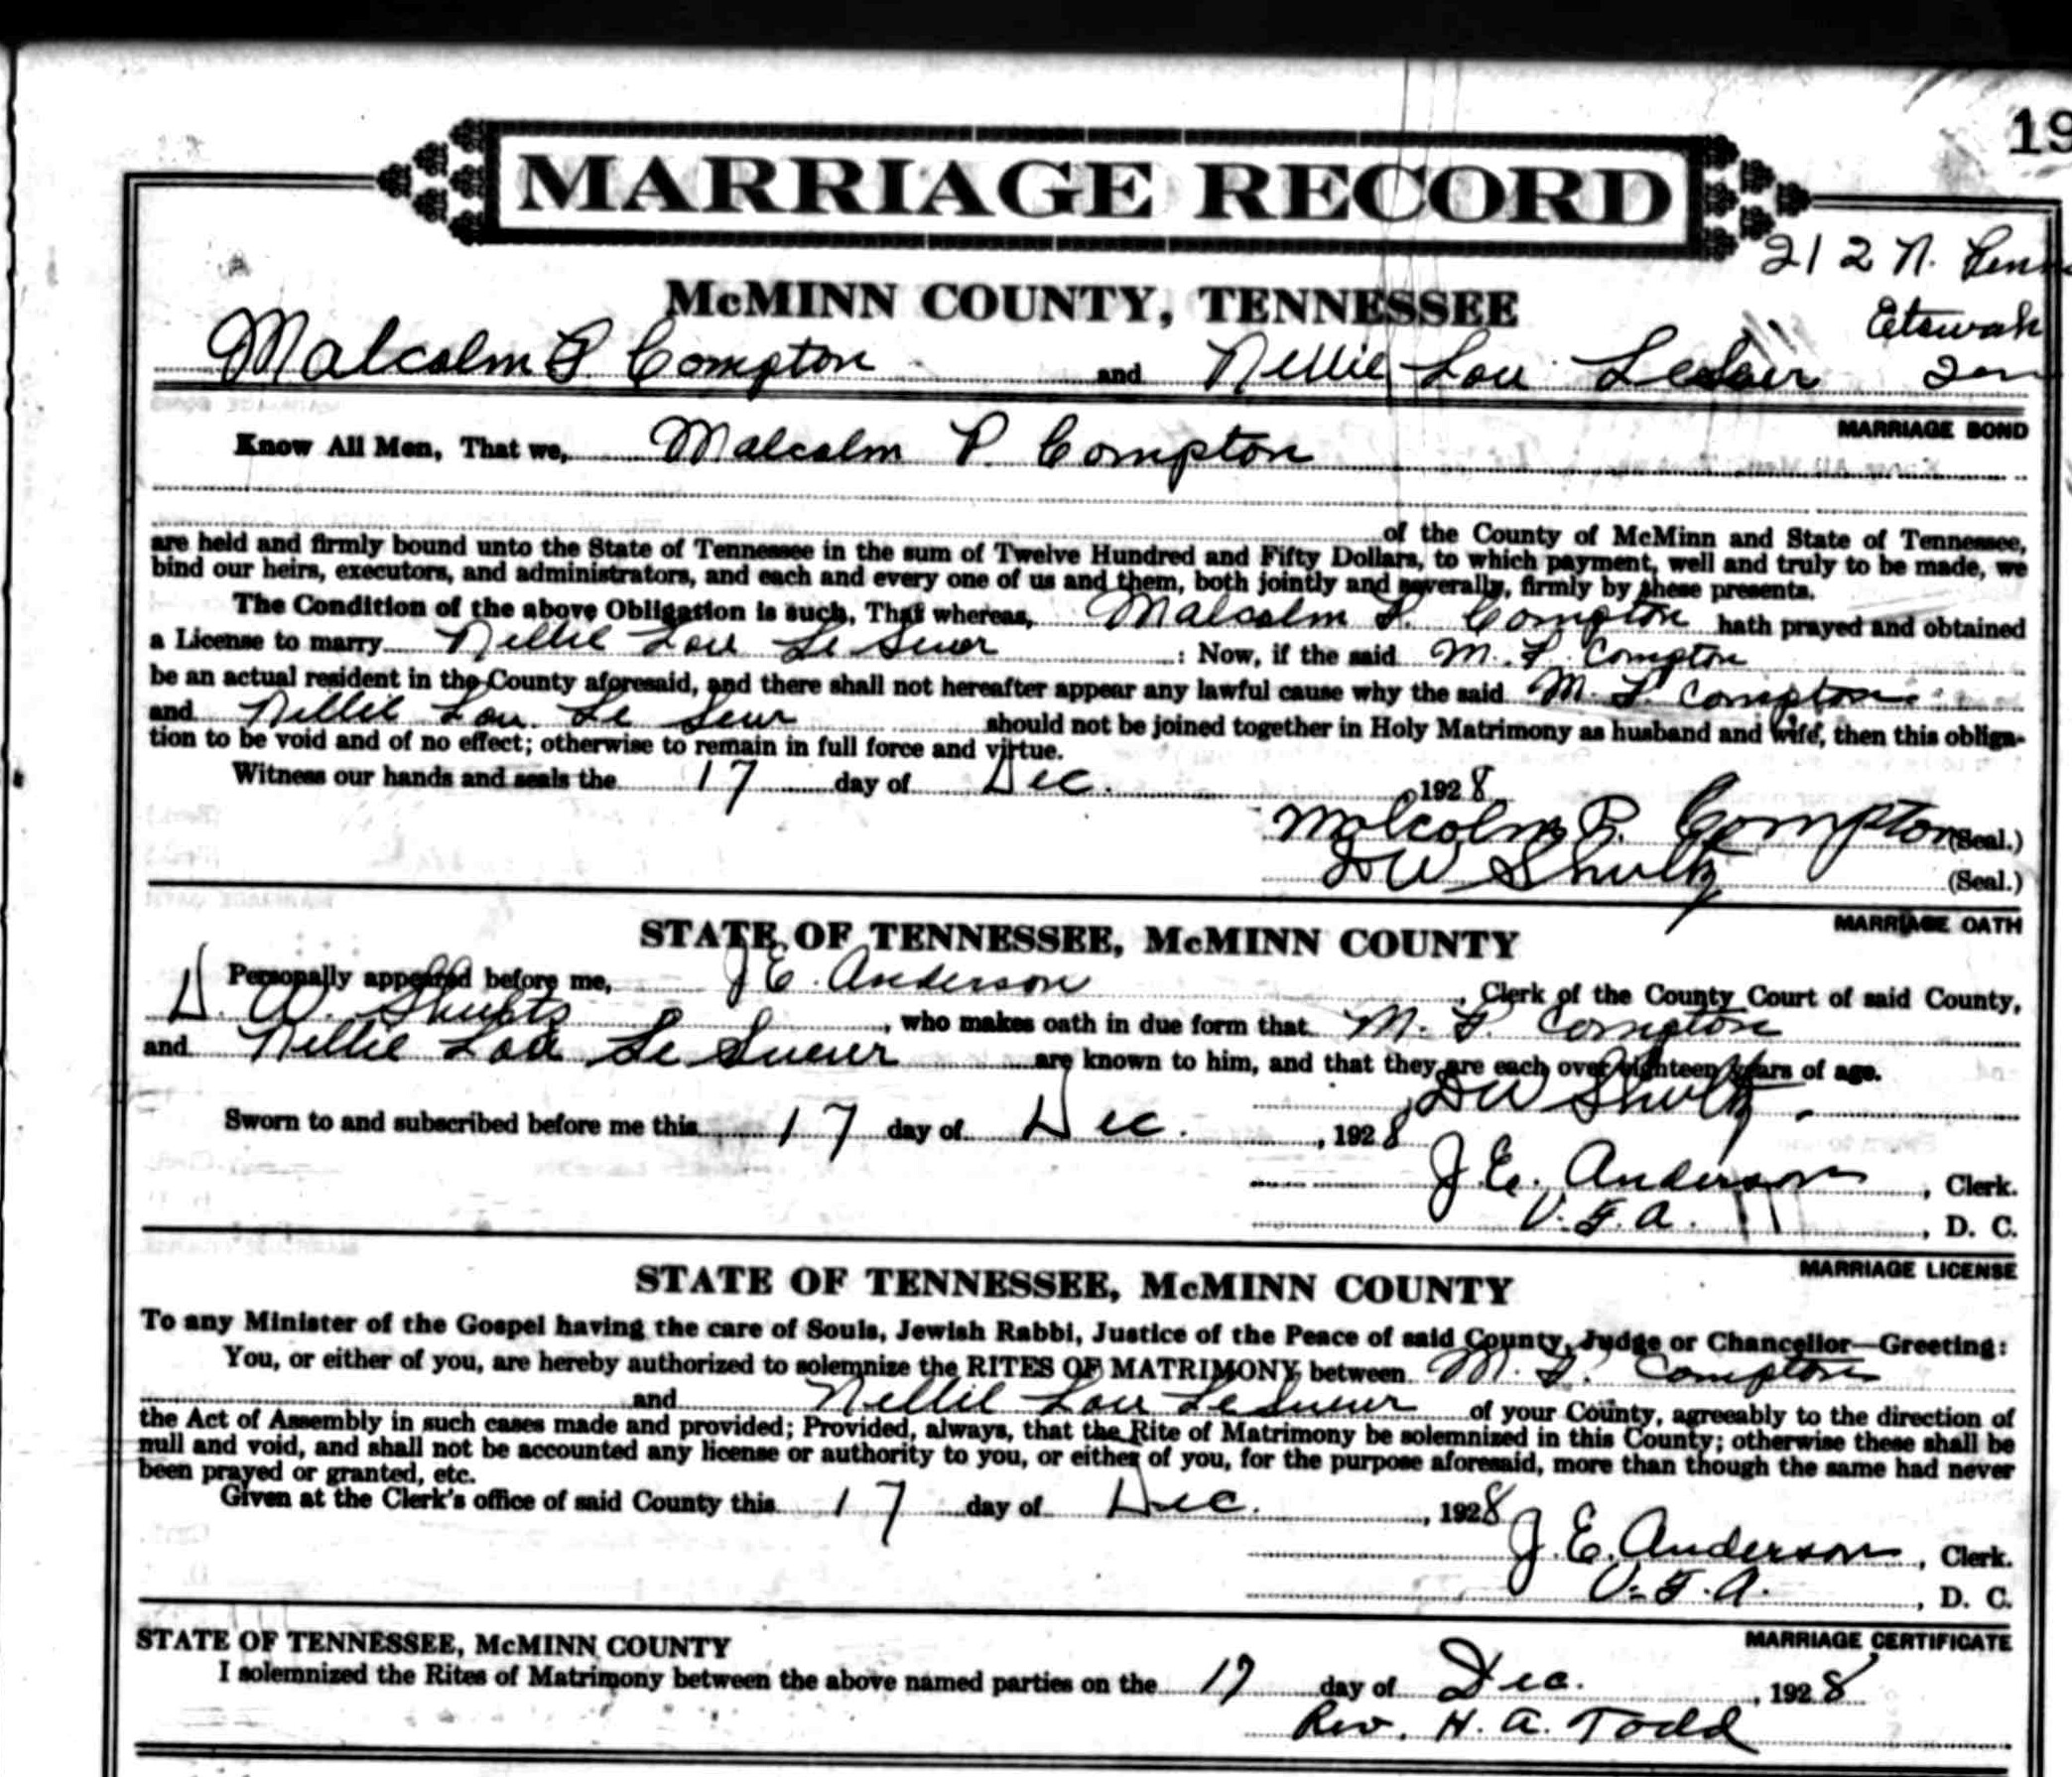 19
MARRIAGE RECORD
212 N. Penn
McMINN COUNTY, TENNESSEE
Etowah
Malcolm P. Compton and Nellie Lou LeSuer
MARRIAGE BOND
Know All Men, That we, Malcolm P. Compton
of the County of McMinn and State of Tennessee,
are held and firmly bound unto the State of Tennessee in the sum of Twelve Hundred and Fifty Dollars, to which payment, well and truly to be made, we
bind our heirs, executors, and administrators, and each and every one of us and them, both jointly and severally, firmly by these presents.
The Condition of the above Obligation is such, That whereas, Malcolm P. Compton hath prayed and obtained
a License to marry Nellie Lou Le Seuer : Now, if the said M. P. Compton
be an actual resident in the County aforesaid, and there shall not hereafter appear any lawful cause why the said M. P. Compton
and Nellie Lou Le Seur should not be joined together in Holy Matrimony as husband and wife, then this obliga-
tion to be void and of no effect; otherwise to remain in full force and virtue.
Witness our hands and seals the 17 day of Dec. 1928
Malcolm P. Compton (Seal.)
DW Shultz (Seal.)
MARRIAGE OATH
STATE OF TENNESSEE, McMINN COUNTY
Personally appeared before me, J E. Anderson, Clerk of the County Court of said County,
D. W. Shultz, who makes oath in due form that M. P. Compton
and Nellie Lou Le Sueur are known to him, and that they are each over eighteen years of age.
DW Shultz.
Sworn to and subscribed before me this 17 day of Dec., 1928
J. E. Anderson, Clerk.
V. F. A., D. C.
MARRIAGE LICENSE
STATE OF TENNESSEE, McMINN COUNTY
To any Minister of the Gospel having the care of Souls, Jewish Rabbi, Justice of the Peace of said County, Judge or Chancellor—Greeting:
You, or either of you, are hereby authorized to solemnize the RITES OF MATRIMONY between M. P. Compton
and Nellie Lou LeSueur of your County, agreeably to the direction of
the Act of Assembly in such cases made and provided; Provided, always, that the Rite of Matrimony be solemnized in this County; otherwise these shall be
null and void, and shall not be accounted any license or authority to you, or either of you, for the purpose aforesaid, more than though the same had never
been prayed or granted, etc.
Given at the Clerk's office of said County this 17 day of Dec., 1928
J. E. Anderson, Clerk.
V. F. A., D. C.
MARRIAGE CERTIFICATE
STATE OF TENNESSEE, McMINN COUNTY
I solemnized the Rites of Matrimony between the above named parties on the 17 day of Dec., 1928
Rev. H. A. Todd